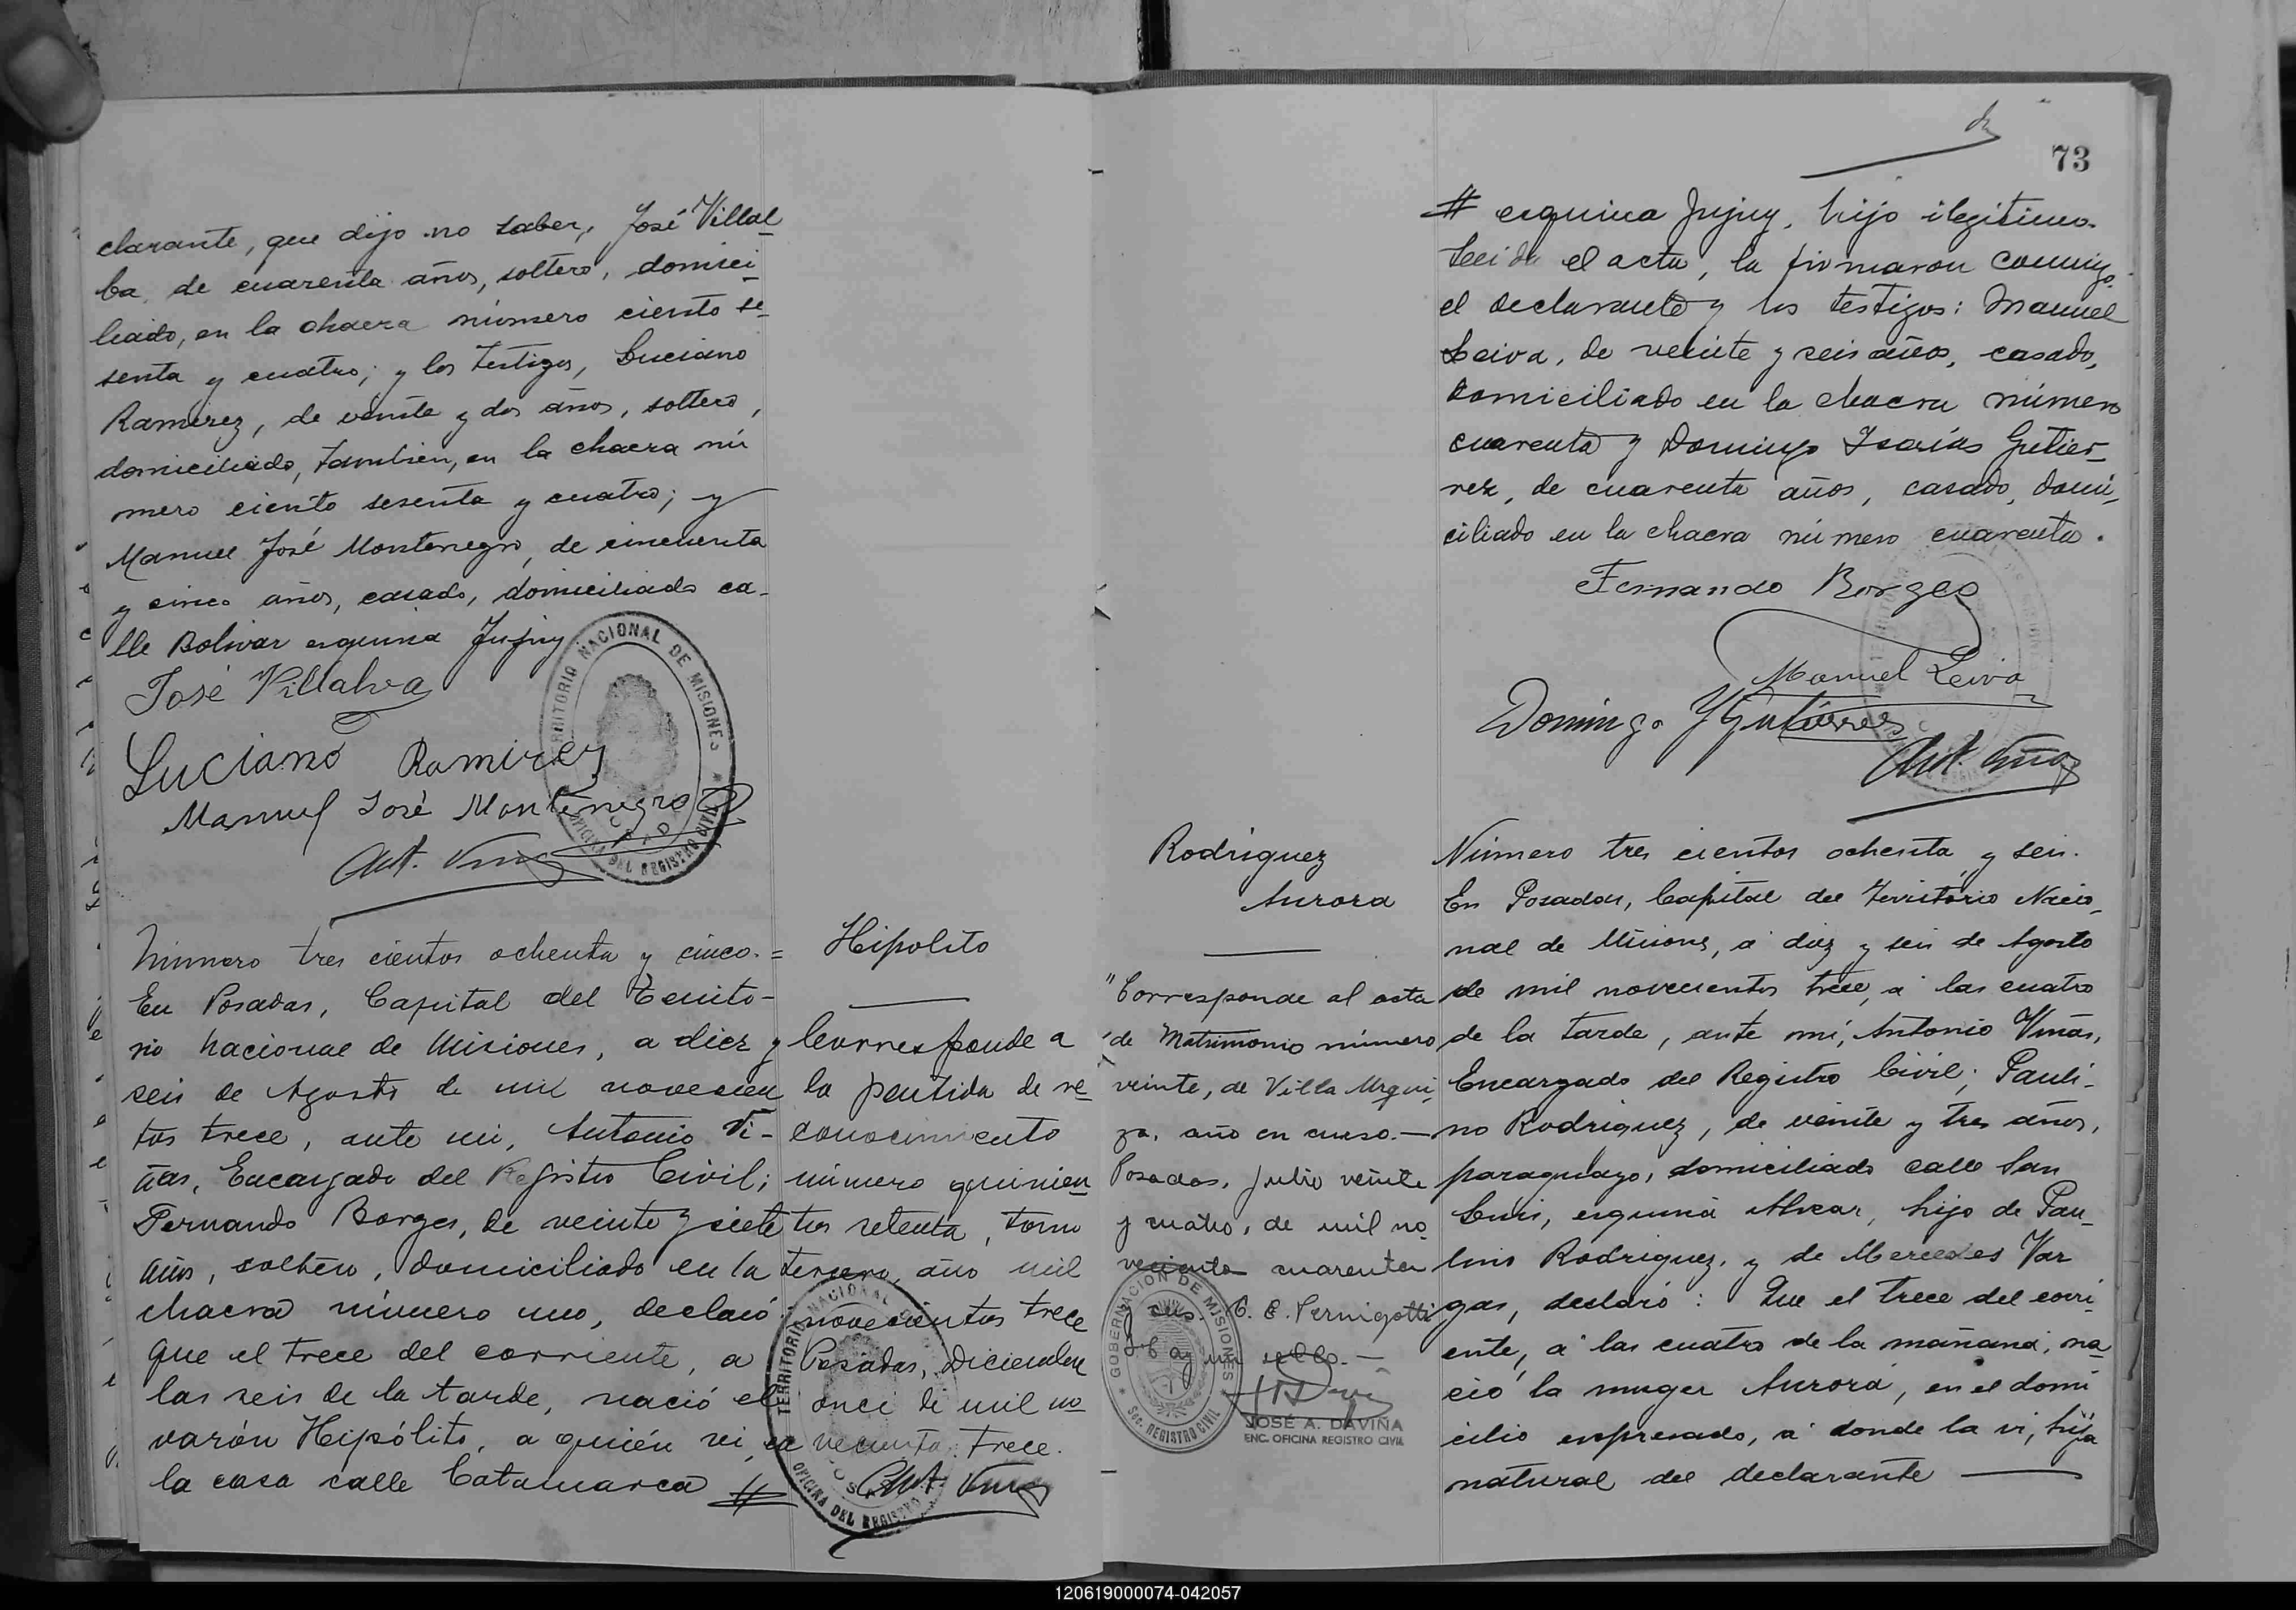 clarante, que dijo no saber, José Villal
ba, de cuarenta años, soltero, domici
liado, en la chacra número ciento se
senta y cuatro; y los testigos, Luciano
Ramirez, de veinte y dos años, soltero,
domiciliado, tambien, en la chacra nú
mero ciento sesenta y cuatro; y
Manuel José Montenegro, de cincuenta
y cinco años, casado, domiciliado ca-
lle Bolivar esquina Jujuy
José Villalva
Luciano Ramirez
Manuel José Montenegro
Ant. Viñas
TERRITORIO NACIONAL DE MISIONES
OFICINA DEL REGISTRO
Número tres cientos ochenta y cinco.=
En Posadas, Capital del Territo-
rio Nacional de Misiones, a diez y
seis de Agosto de mil novecien
tos trece, ante mi, Antonio Vi-
ñas, Encargado del Registro Civil;
Fernando Borges, de veinte y siete
años, soltero, domiciliado en la
chacra número uno, declaró:
que el trece del corriente, a
las seis de la tarde, nació el
varón Hipólito, a quién vi en
la casa calle Catamarca #
Hipolito
Corresponde a
la partida de re
conocimiento
número quinien
tos setenta, tomo
tercero, año mil
novecientos trece
Posadas, Diciembre
once de mil no
vecientos trece.
Ant. Viñas
TERRITORIO NACIONAL
OFICINA DEL REGISTRO
73
# esquina Jujuy, hijo ilegitimo.
Leida el acta, la firmaron conmigo
el declarante y los testigos: Manuel
Leiva, de veinte y seis años, casado,
domiciliado en la chacra número
cuarenta y Domingo Isaías Gutier-
rez, de cuarenta años, casado, domi-
ciliado en la chacra número cuarenta.
Fernando Borges
Manuel Leiva
Domingo Y Gutierrez
Ant. Viñas
Rodriguez
Aurora
"Corresponde al acta
de Matrimonio número
veinte, de Villa Urqui
za, año en curso.—
Posadas, Julio veinte
y cuatro, de mil no
vecientos cuarenta
C. E. Pernigotti
Hay un sello.—
GOBERNACION DE MISIONES
Sec. REGISTRO CIVIL
JOSÉ A. DAVIÑA
ENC. OFICINA REGISTRO CIVIL
Número tres cientos ochenta y seis.
En Posadas, Capital del Territorio Nacio-
nal de Misiones, á diez y seis de Agosto
de mil novecientos trece, á las cuatro
de la tarde, ante mi, Antonio Viñas,
Encargado del Registro Civil; Pauli-
no Rodriguez, de veinte y tres años,
paraguayo, domiciliado calle San
Luis, esquina Alvear, hijo de Pau-
lino Rodriguez, y de Mercedes Var
gas, declaró: Que el trece del corri-
ente, á las cuatro de la mañana, na
ció la muger Aurora, en el domi
cilio expresado, á donde la vi, hija
natural del declarante —
120619000074-042057